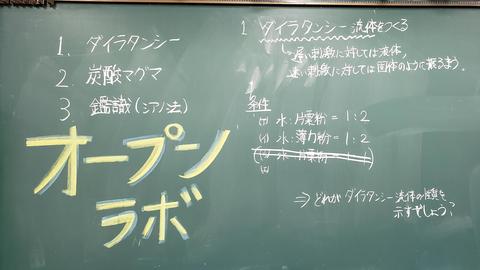 1. ダイラタンシー
2. 炭酸マグマ
3 鑑識(シアノ法)
オープン
ラボ
1 ダイラタンシー流体をつくる
遅い刺激に対しては液体,
速い刺激に対しては固体のように振るまう。
条件
(ア) 水:片栗粉=1:2
(イ) 水:薄力粉=1:2
水:片栗粉=
⇒ どれがダイラタンシー流体の性質を
示すでしょう?